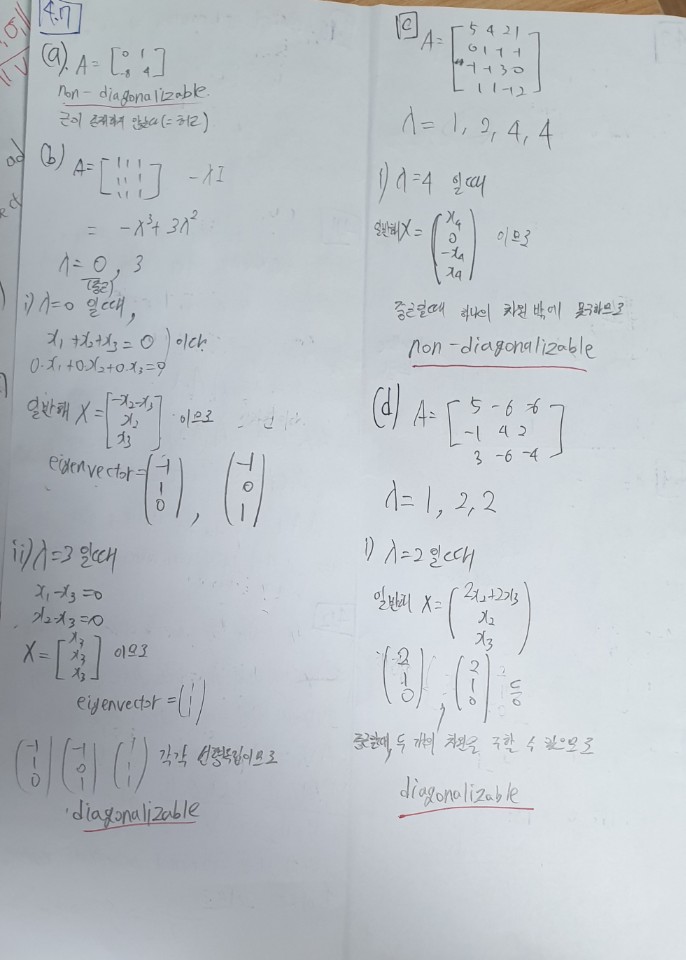 4.7
(a). A = [0 1
-8 4]
non-diagonalizable.
근이 존재하지 않는다 (= 허근)
(b) A = [1 1 1
1 1 1
1 1 1] - λI
= -λ³ + 3λ²
λ = 0, 3
(중근)
i) λ=0 일때,
x₁ + x₂ + x₃ = 0 ) 이다.
0·x₁+0·x₂+0·x₃=0
일반해 X = [-x₂-x₃
x₂
x₃] 이므로
eigenvector = (-1
1
0), (-1
0
1)
ii) λ=3 일때
x₁-x₃=0
x₂-x₃=0
X = [x₃
x₃
x₃] 이므로
eigenvector = (1
1
1)
(-1
1
0) (-1
0
1) (1
1
1) 각각 선형독립이므로
diagonalizable
C A = [5 4 2 1
0 1 -1 -1
-1 -1 3 0
1 1 -1 2]
λ = 1, 2, 4, 4
i) λ=4 일때
일반해 X = (x₄
0
-x₄
x₄) 이므로
중근일때 하나의 차원 밖에 못구하므로
non-diagonalizable
(d) A = [5 -6 -6
-1 4 2
3 -6 -4]
λ = 1, 2, 2
i) λ=2 일때
일반해 X = (2x₂+2x₃
x₂
x₃)
(2
1
0), (2
1
0) 등
중근일때, 두 개의 차원을 구할 수 있으므로
diagonalizable